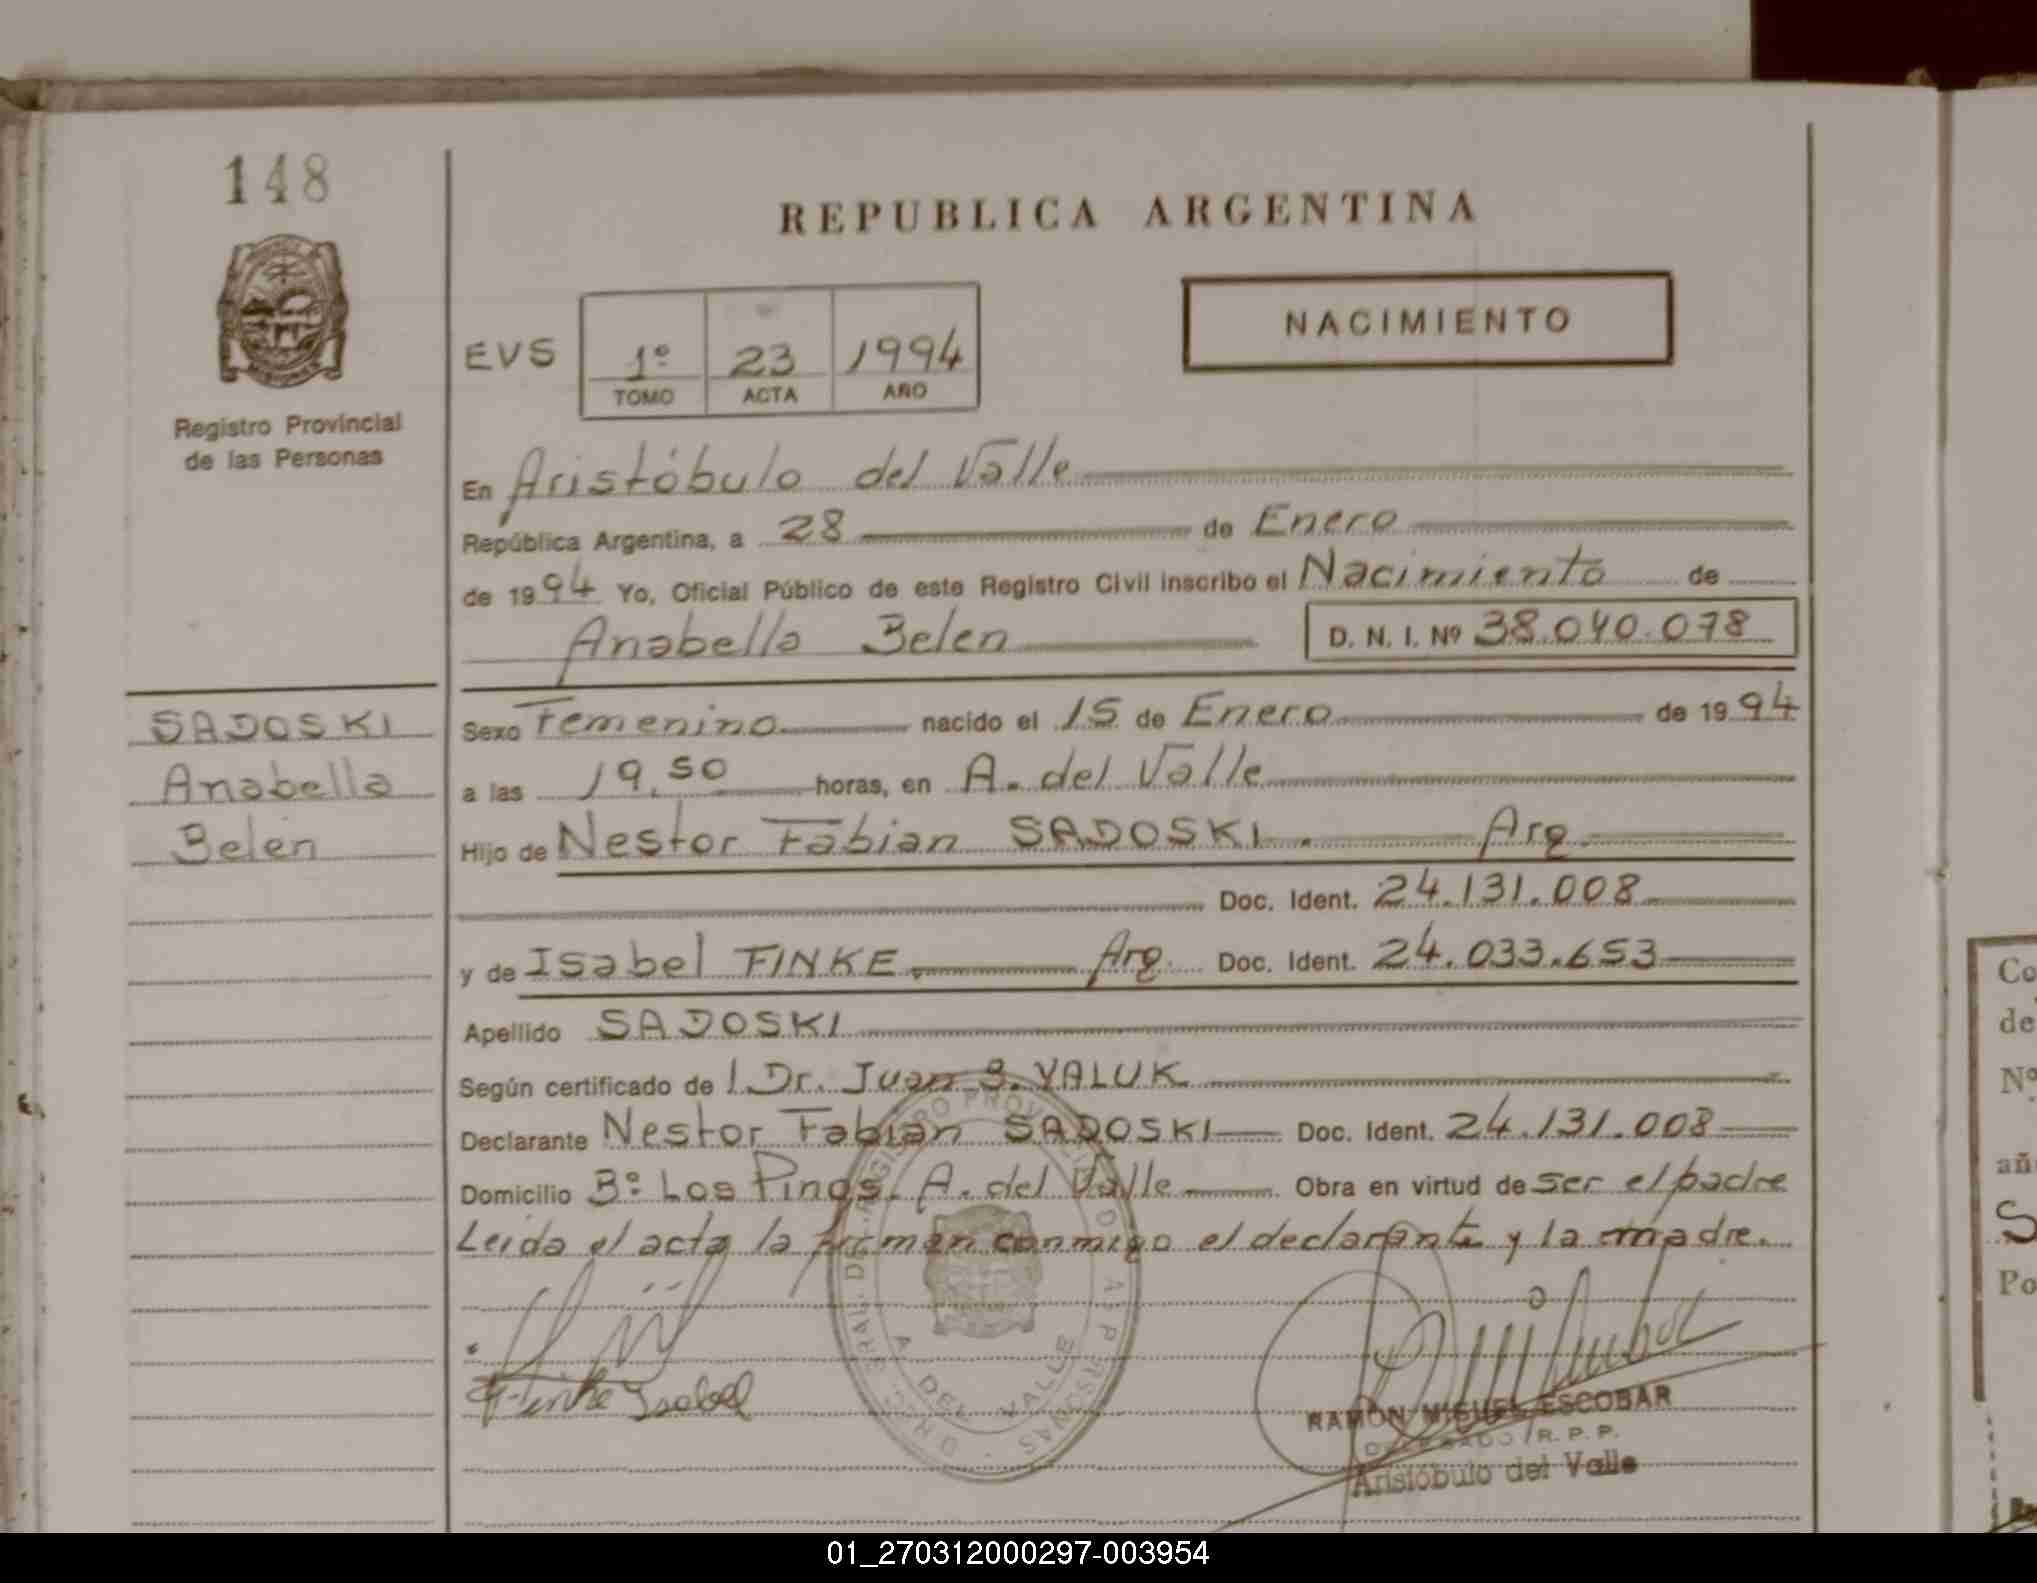 148
REPUBLICA ARGENTINA
NACIMIENTO
EVS 1º 23 1994
TOMO ACTA AÑO
Registro Provincial
de las Personas
En Aristóbulo del Valle
República Argentina, a 28 de Enero
de 1994 Yo, Oficial Público de este Registro Civil inscribo el Nacimiento de
Anabella Belen D. N. I. Nº 38.040.078
SADOSKI
Anabella
Belén
Sexo Femenino nacido el 15 de Enero de 1994
a las 19,50 horas, en A. del Valle
Hijo de Nestor Fabian SADOSKI. Arg.
Doc. Ident. 24.131.008
y de Isabel FINKE. Arg. Doc. Ident. 24.033.653
Apellido SADOSKI
Según certificado de Dr. Juan S. YALUK
Declarante Nestor Fabian SADOSKI Doc. Ident. 24.131.008
Domicilio Bº Los Pinos. A. del Valle Obra en virtud de ser el padre
Leida el acta la firman conmigo el declarante y la madre.
Finke Isabel
A. DEL VALLE
RAMON MIGUEL ESCOBAR
DELEGADO R. P. P.
Aristóbulo del Valle
Co
de
Nº
añ
S
Po
01_270312000297-003954